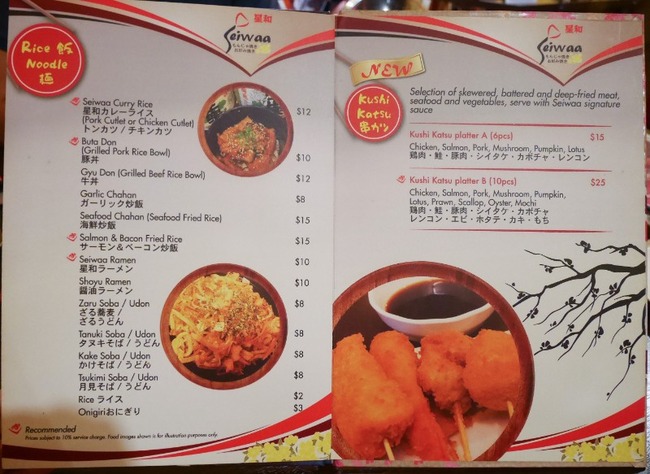 Rice 飯
Noodle
麺
星和
Seiwaa
もんじゃ焼き
お好み焼き
Seiwaa Curry Rice
星和カレーライス $12
(Pork Cutlet or Chicken Cutlet)
トンカツ / チキンカツ
Buta Don
(Grilled Pork Rice Bowl)
豚丼 $10
Gyu Don (Grilled Beef Rice Bowl) $12
牛丼
Garlic Chahan $8
ガーリック炒飯
Seafood Chahan (Seafood Fried Rice) $15
海鮮炒飯
Salmon & Bacon Fried Rice $15
サーモン＆ベーコン炒飯
Seiwaa Ramen $10
星和ラーメン
Shoyu Ramen $10
醤油ラーメン
Zaru Soba / Udon $8
ざる蕎麦 /
ざるうどん
Tanuki Soba / Udon $8
タヌキそば / うどん
Kake Soba / Udon $8
かけそば / うどん
Tsukimi Soba / Udon $8
月見そば / うどん
Rice ライス $2
Onigiriおにぎり $3
Recommended
Prices subject to 10% service charge. Food images shown is for illustration purposes only.
星和
Seiwaa
もんじゃ焼き
お好み焼き
NEW
Kushi
Katsu
串カツ
Selection of skewered, battered and deep-fried meat,
seafood and vegetables, serve with Seiwaa signature
sauce
Kushi Katsu platter A (6pcs) $15
Chicken, Salmon, Pork, Mushroom, Pumpkin, Lotus
鶏肉・鮭・豚肉・シイタケ・カボチャ・レンコン
Kushi Katsu platter B (10pcs) $25
Chicken, Salmon, Pork, Mushroom, Pumpkin,
Lotus, Prawn, Scallop, Oyster, Mochi
鶏肉・鮭・豚肉・シイタケ・カボチャ
レンコン・エビ・ホタテ・カキ・もち